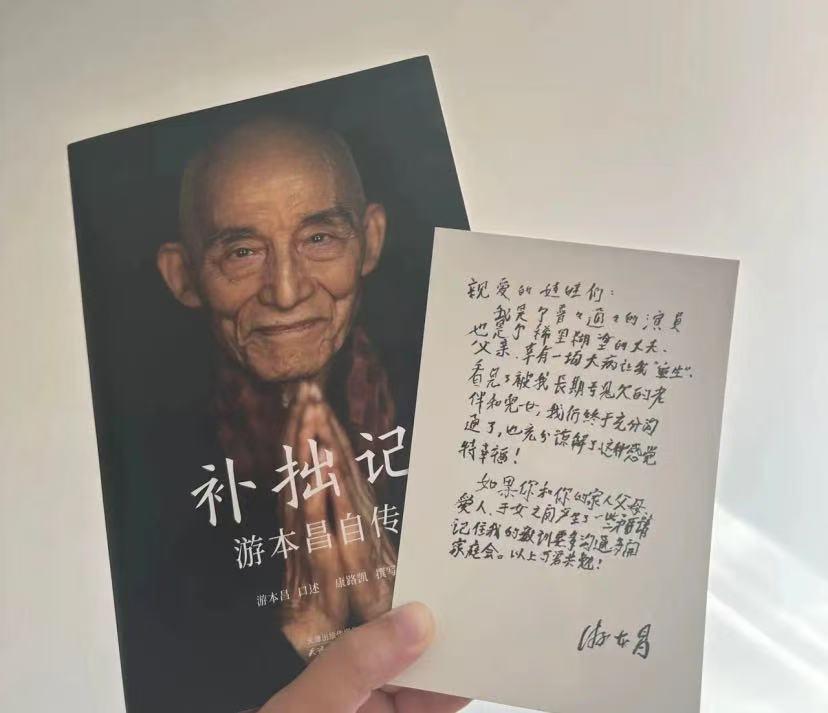 补拙记
游本昌自传
游本昌 口述 康路凯 撰写
天津出版传
親爱的娃娃们：
我是个普々通々的演员
也是个稀里糊塗的丈夫、
父亲、幸有一场大病让我“重生”、
看見了被我長期欠的老
伴和兒女，我们終于充分沟
通了，也充分諒解了这种感觉
特幸福！
如果你和你的家人父母、
爱人、子女之间产生了一些請
记住我的教训要多沟通多開
家庭会。以上与君共勉！
游本昌